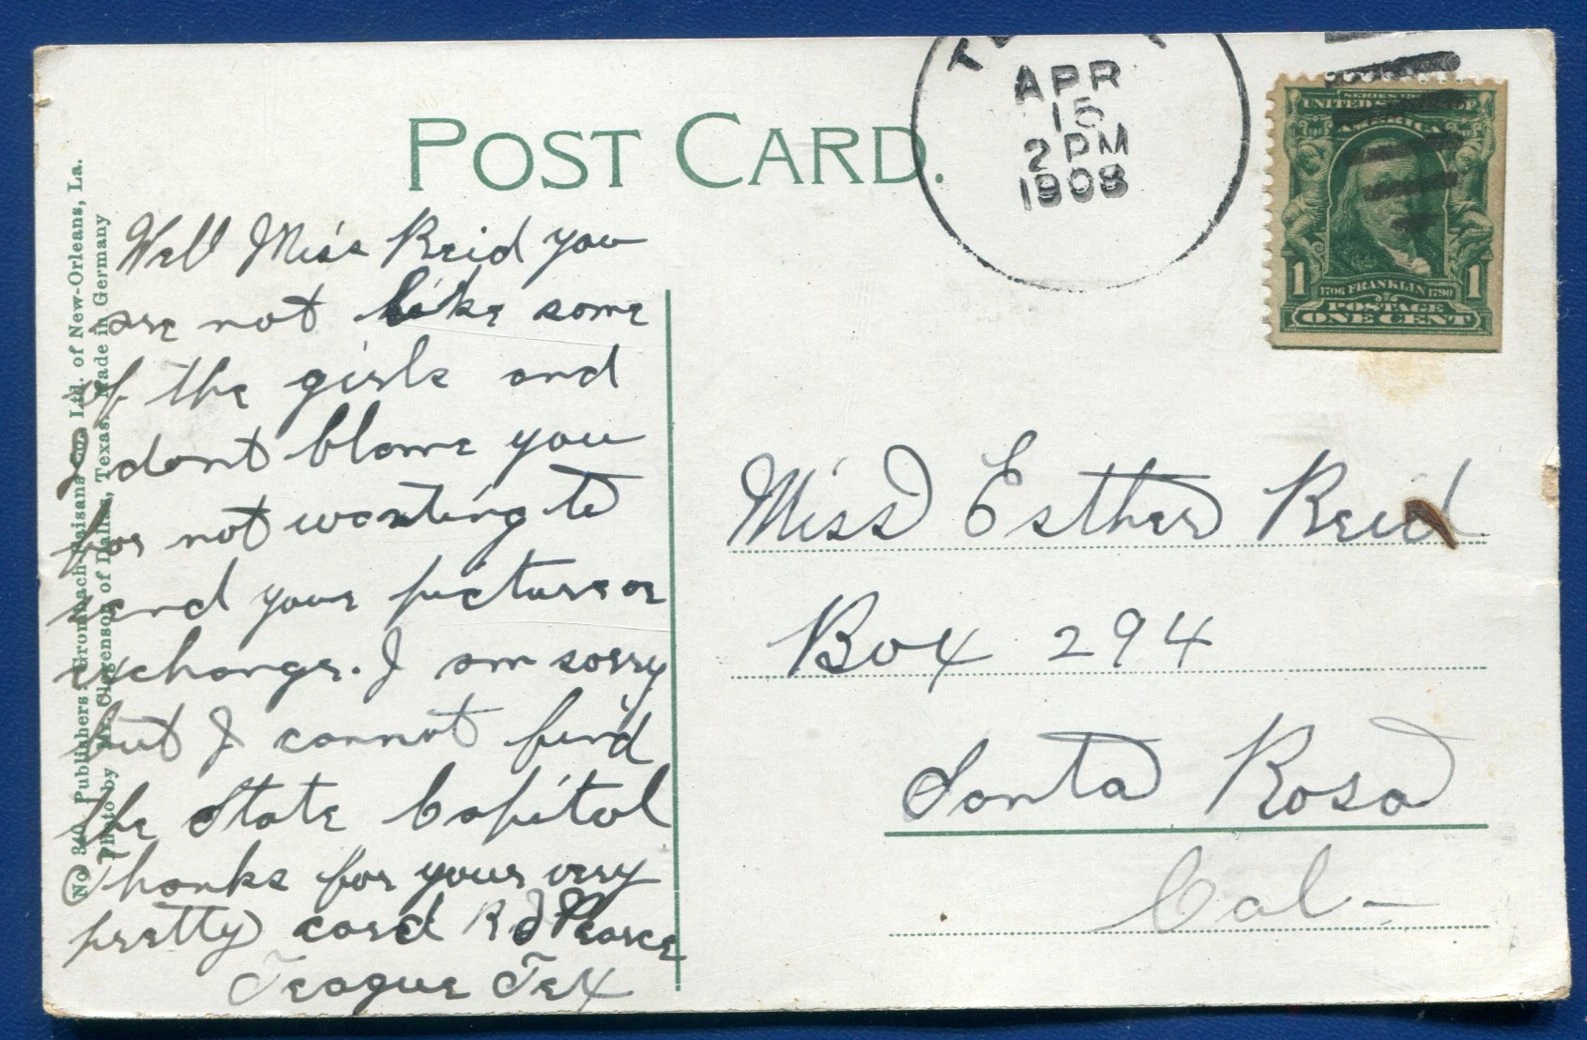 POST CARD.
APR
15
2 PM
1908
UNITED STATES OF
AMERICA
1 1
1706 FRANKLIN 1790
POSTAGE
ONE CENT
Well Miss Reid you
are not like some
of the girls and
I dont blame you
for not wanting to
send your picture or
exchange. I am sorry
but I cannot find
the State Capitol
Thanks for your very
pretty card R J Pearce
Teague Tex
Miss Esther Reid
Box 294
Santa Rosa
Cal-
No 340 Publishers: Ltd. of New-Orleans, La.
Photo by Mr. Clogenson of Dallas, Texas. Made in Germany